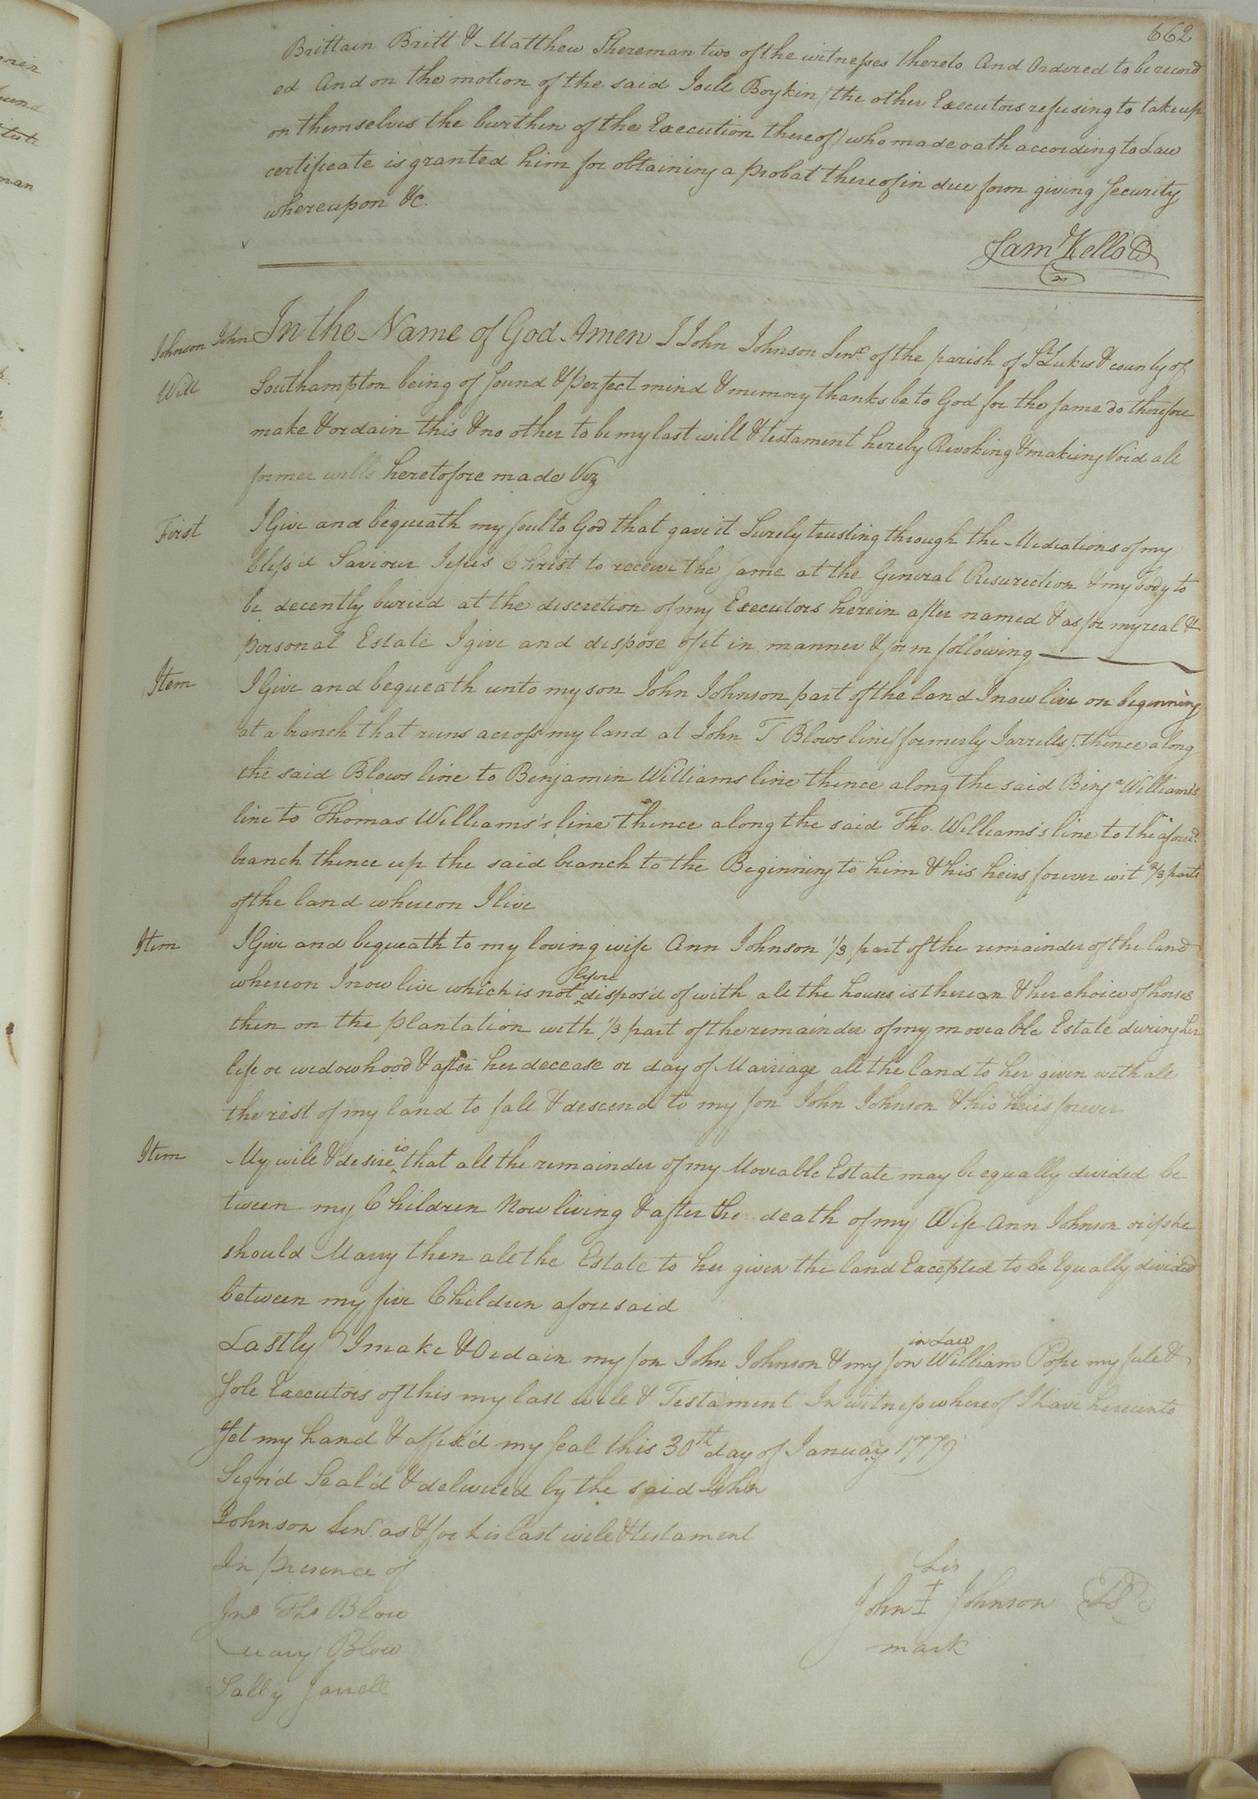 662
Brittain Britt & Matthew Shereman two of the witnesses thereto And Ordered to be record
ed And on the motion of the said Joell Boykin (the other Executors refusing to take up
on themselves the burthen of the Execution thereof) who made oath according to Law
certificate is granted him for obtaining a probat thereof in due form giving Security
whereupon &c.
Sam Kello
Johnson John In the Name of God Amen I John Johnson Senr. of the parish of St Lukes & county of
Will Southampton being of sound & perfect mind & memory thanks be to God for the same do therefore
make & ordain this & no other to be my last will & testament hereby Revoking & making Void all
former wills heretofore made Viz
First I Give and bequeath my soul to God that gave it Surely trusting through the Mediations of my
bless'd Saviour Jesus Christ to receive the same at the General Resurection & my body to
be decently buried at the discretion of my Executors herein after named & as for my real &
personal Estate I give and dispose of it in manner & form following
Item I Give and bequeath unto my son John Johnson part of the land I now live on beginning
at a branch that runs across my land at John T Blows line (formerly Jarrells) thence along
the said Blows line to Benjamin Williams line thence along the said Benja Williams's
line to Thomas Williams's line thence along the said Tho. Williams's line to the afored.
branch thence up the said branch to the Beginning to him & his heirs forever wit 2/3 parts
of the land whereon I live
Item I Give and bequeath to my loving wife Ann Johnson 1/3 part of the remainder of the land
whereon I now live which is not before dispos'd of with all the houses is thereon & her choice of horses
then on the plantation with 1/3 part of the remainder of my moveable Estate during her
life or widowhood & after her decease or day of Marriage all the land to her given with all
the rest of my land to fall & descend to my son John Johnson & his heirs forever
Item My will & desire is that all the remainder of my Moveable Estate may be equally divided be
tween my Children Now living & after the death of my Wife Ann Johnson or if she
should Marry then all the Estate to her given the land Excepted to be Equally divided
between my five Children aforesaid
Lastly I make & Ordain my son John Johnson & my son in Law William Pope my full &
sole Executors of this my last will & Testament In witness whereof I have hereunto
set my hand & affix'd my seal this 30th day of January 1779
Sign'd Seal'd & delivered by the said John
Johnson Senr as & for his last will & testament
In presence of
his
Jno Tho Blow
John I Johnson LS
Mary Blow
mark
Sally Jarrell